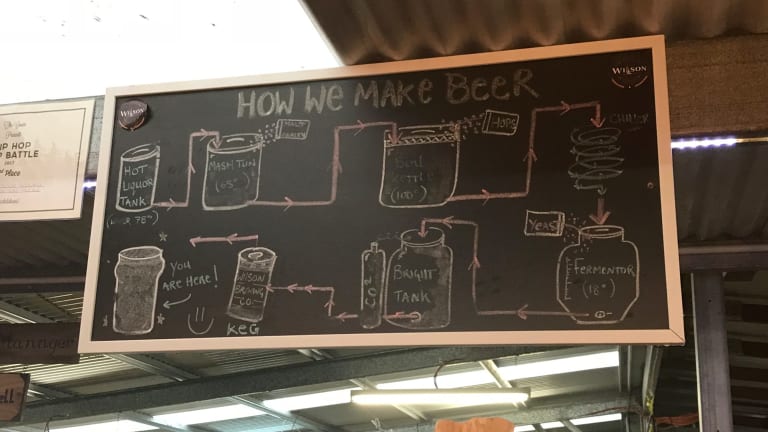 HOW WE MAKE BEER
WILSON
WILSON
HIP HOP
BATTLE
Place
HOT
LIQUOR
TANK
MASH TUN
(65°)
MALT
BARLEY
BOIL
KETTLE
(100°)
HOPS
CHILLER
YEAST
FERMENTOR
(18°)
BRIGHT
TANK
CO2
WILSON
BREWING
CO.
KEG
YOU
ARE HERE!
Manager
ell